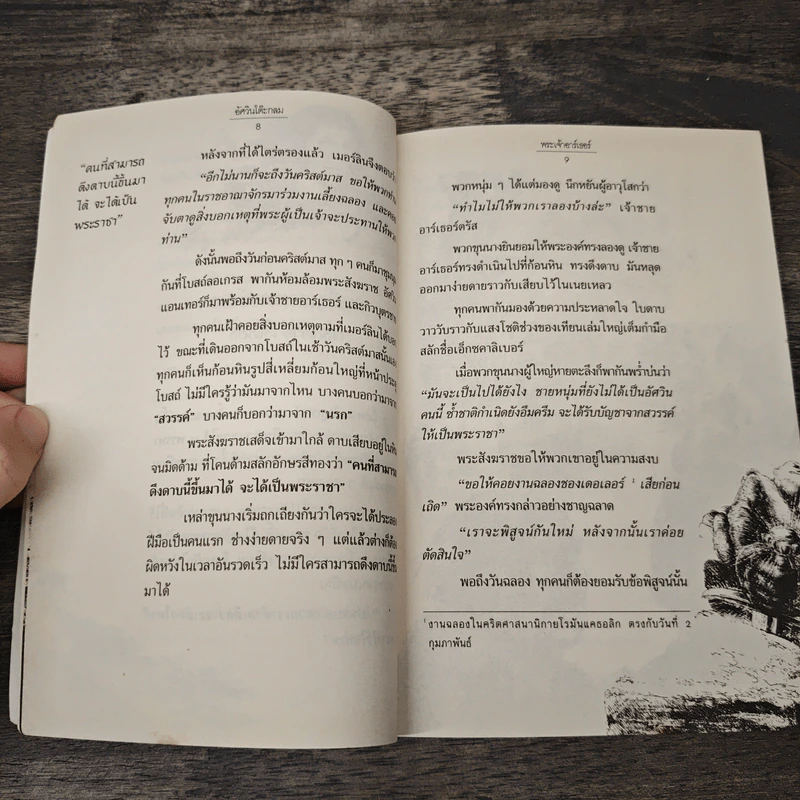 อัศวินโต๊ะกลม
8
"คนที่สามารถ
ดึงดาบนี้ขึ้นมา
ได้ จะได้เป็น
พระราชา"
หลังจากที่ได้ไตร่ตรองแล้ว เมอร์ลินจึงตอบว่า
"อีกไม่นานก็จะถึงวันคริสต์มาส ขอให้พวกท่าน
ทุกคนในราชอาณาจักรมาร่วมงานเลี้ยงฉลอง และคอย
จับตาดูสิ่งบอกเหตุที่พระผู้เป็นเจ้าจะประทานให้พวก
ท่าน"
ดังนั้นพอถึงวันก่อนคริสต์มาส ทุก ๆ คนก็มาชุมนุม
กันที่โบสถ์ลอเกรส พากันห้อมล้อมพระสังฆราช อัศวิน
แอนเทอร์ก็มาพร้อมกับเจ้าชายอาร์เธอร์ และกิวบุตรชาย
ทุกคนเฝ้าคอยสิ่งบอกเหตุตามที่เมอร์ลินได้บอก
ไว้ ขณะที่เดินออกจากโบสถ์ในเช้าวันคริสต์มาสนั้นเอง
ทุกคนก็เห็นก้อนหินรูปสี่เหลี่ยมก้อนใหญ่ที่หน้าประตู
โบสถ์ ไม่มีใครรู้ว่ามันมาจากไหน บางคนบอกว่ามาจาก
"สวรรค์" บางคนก็บอกว่ามาจาก "นรก"
พระสังฆราชเสด็จเข้ามาใกล้ ดาบเสียบอยู่ในหิน
จนมิดด้าม ที่โคนด้ามสลักอักษรสีทองว่า "คนที่สามารถ
ดึงดาบนี้ขึ้นมาได้ จะได้เป็นพระราชา"
เหล่าขุนนางเริ่มถกเถียงกันว่าใครจะได้ประลอง
ฝีมือเป็นคนแรก ช่างง่ายดายจริง ๆ แต่แล้วต่างก็ต้อง
ผิดหวังในเวลาอันรวดเร็ว ไม่มีใครสามารถดึงดาบนี้ขึ้น
มาได้
พระเจ้าอาร์เธอร์
9
พวกหนุ่ม ๆ ได้แต่มองดู นึกหยันผู้อาวุโสกว่า
"ทำไมไม่ให้พวกเราลองบ้างล่ะ" เจ้าชาย
อาร์เธอร์ตรัส
พวกขุนนางยินยอมให้พระองค์ทรงลองดู เจ้าชาย
อาร์เธอร์ทรงดำเนินไปที่ก้อนหิน ทรงดึงดาบ มันหลุด
ออกมาง่ายดายราวกับเสียบไว้ในเนยเหลว
ทุกคนพากันมองด้วยความประหลาดใจ ใบดาบ
วาววับราวกับแสงโชติช่วงของเทียนเล่มใหญ่เต็มกำมือ
สลักชื่อเอ็กซคาลิเบอร์
เมื่อพวกขุนนางผู้ใหญ่หายตะลึงก็พากันพร่ำบ่นว่า
"มันจะเป็นไปได้ยังไง ชายหนุ่มที่ยังไม่ได้เป็นอัศวิน
คนนี้ ซ้ำชาติกำเนิดยังอึมครึม จะได้รับบัญชาจากสวรรค์
ให้เป็นพระราชา"
พระสังฆราชขอให้พวกเขาอยู่ในความสงบ
"ขอให้คอยงานฉลองชองเดอเลอร์ ¹ เสียก่อน
เถิด" พระองค์ทรงกล่าวอย่างชาญฉลาด
"เราจะพิสูจน์กันใหม่ หลังจากนั้นเราค่อย
ตัดสินใจ"
พอถึงวันฉลอง ทุกคนก็ต้องยอมรับข้อพิสูจน์นั้น
¹ งานฉลองในคริตศาสนานิกายโรมันแคธอลิก ตรงกับวันที่ 2
กุมภาพันธ์